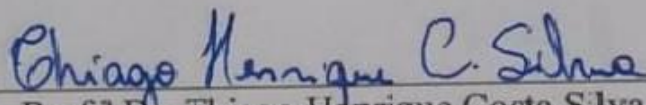 Thiago Henrique C. Silva
Prof.º Dr. Thiago Henrique Costa Silva